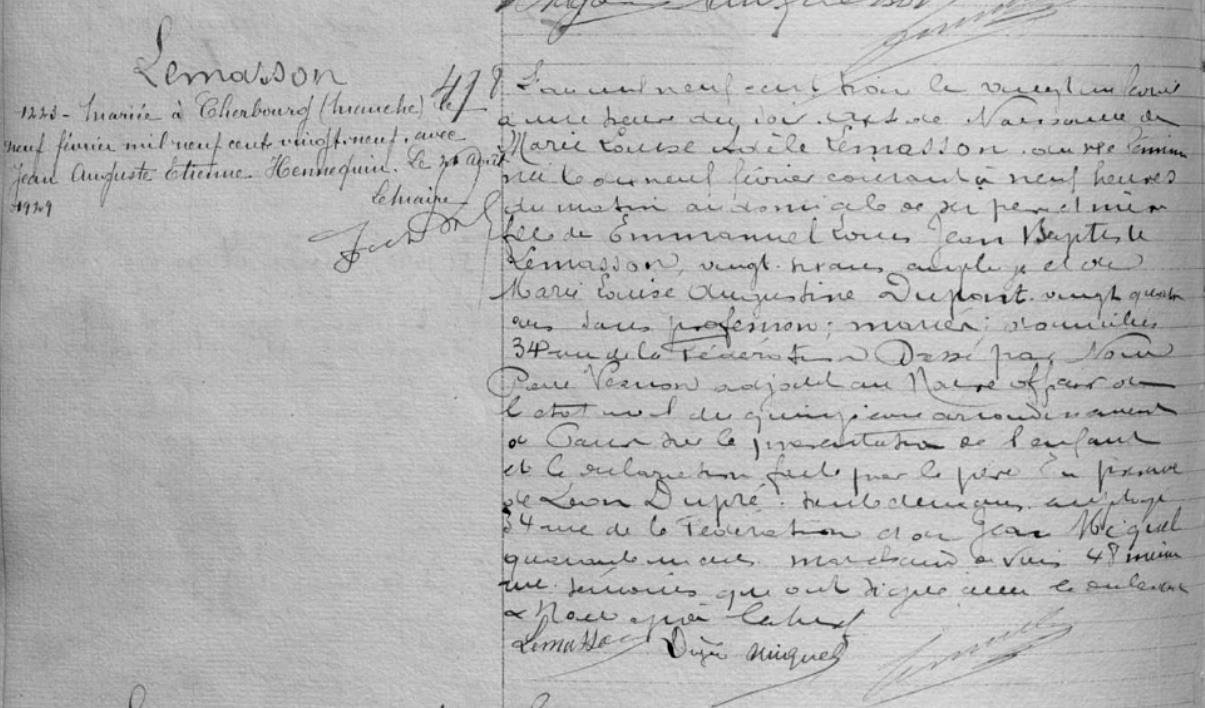 Lemasson
1223 - Mariée à Cherbourg (Manche) le
neuf février mil neuf cent vingt-neuf, avec
Jean Auguste Etienne Hennequin. Le Avril
1929
Le Maire
L'an mil neuf cent trois le vingt un février
à une heure du soir. Acte de Naissance de
Marie Louise Adèle Lemasson, du sexe féminin
née le dix neuf février courant à neuf heures
du matin au domicile de ses père et mère
fille de Emmanuel Louis Jean Baptiste
Lemasson, vingt ans employé et de
Marie Louise Augustine Dupont vingt quatre
ans sans profession; mariés; domiciliés
34 rue de la Fédération Dressé par Nous
Pierre Vernon adjoint au Maire officier de
l'état civil du quinzième arrondissement
de Paris sur la présentation de l'enfant
et la déclaration faite par le père En présence
de Léon Dupré trente deux ans employé
34 rue de la Fédération et de Jean Miquel
quarante ans marchand de vins 48 même
rue témoins qui ont signé avec le déclarant
et Nous après lecture
Lemasson Dupré Miquel